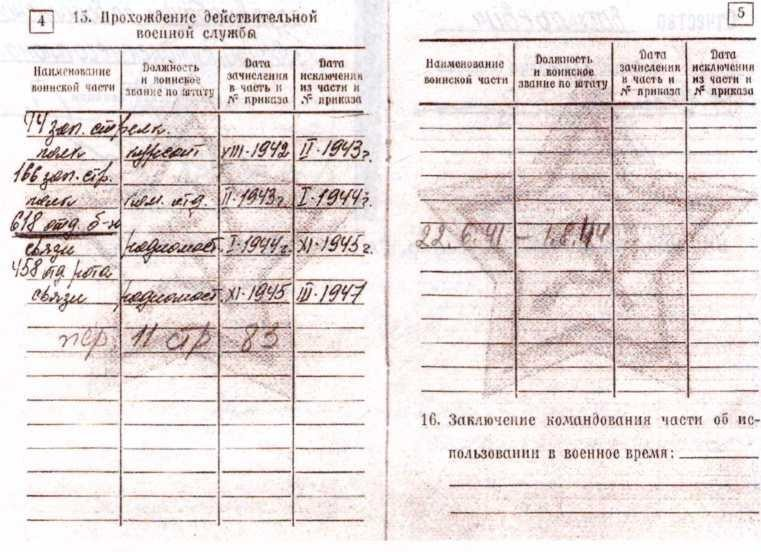 4
13. Прохождение действительной
военной службы
Наименование воинской части
Должность и воинское звание по штату
Дата зачисления в часть и № приказа
Дата исключения из части и № приказа
44 зап. стрелк.
полк курсант VIII-1942 II-1943г.
166 зап. стр.
полк ком. отд. II-1943г. I-1944г.
618 отд. б-н
связи радиомаст. I-1944г. XI-1945г.
458 отд рота
связи радиомаст. XI-1945 III-1947
пер. 11 стр 83
5
Наименование воинской части
Должность и воинское звание по штату
Дата зачисления в часть и № приказа
Дата исключения из части и № приказа
22.6.41 – 1.8.44
16. Заключение командования части об ис-
пользовании в военное время: